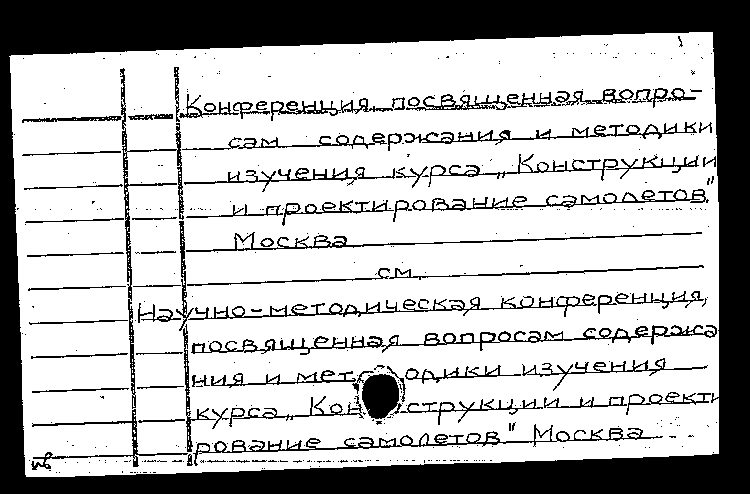 Конференция, посвященная вопро-
сам содержания и методики
изучения курса „Конструкции
и проектирование самолетов"
Москва
см.
Научно-методическая конференция,
посвященная вопросам содержа
ния и методики изучения
курса „Конструкции и проекти
рование самолетов" Москва